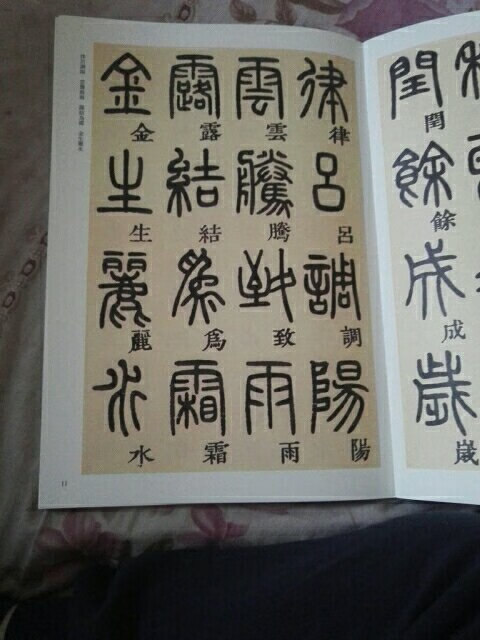 閏餘成歲
閏餘成歲
律呂調陽
律呂調陽
雲騰致雨
雲騰致雨
露結爲霜
露結爲霜
金生麗水
金生麗水
11